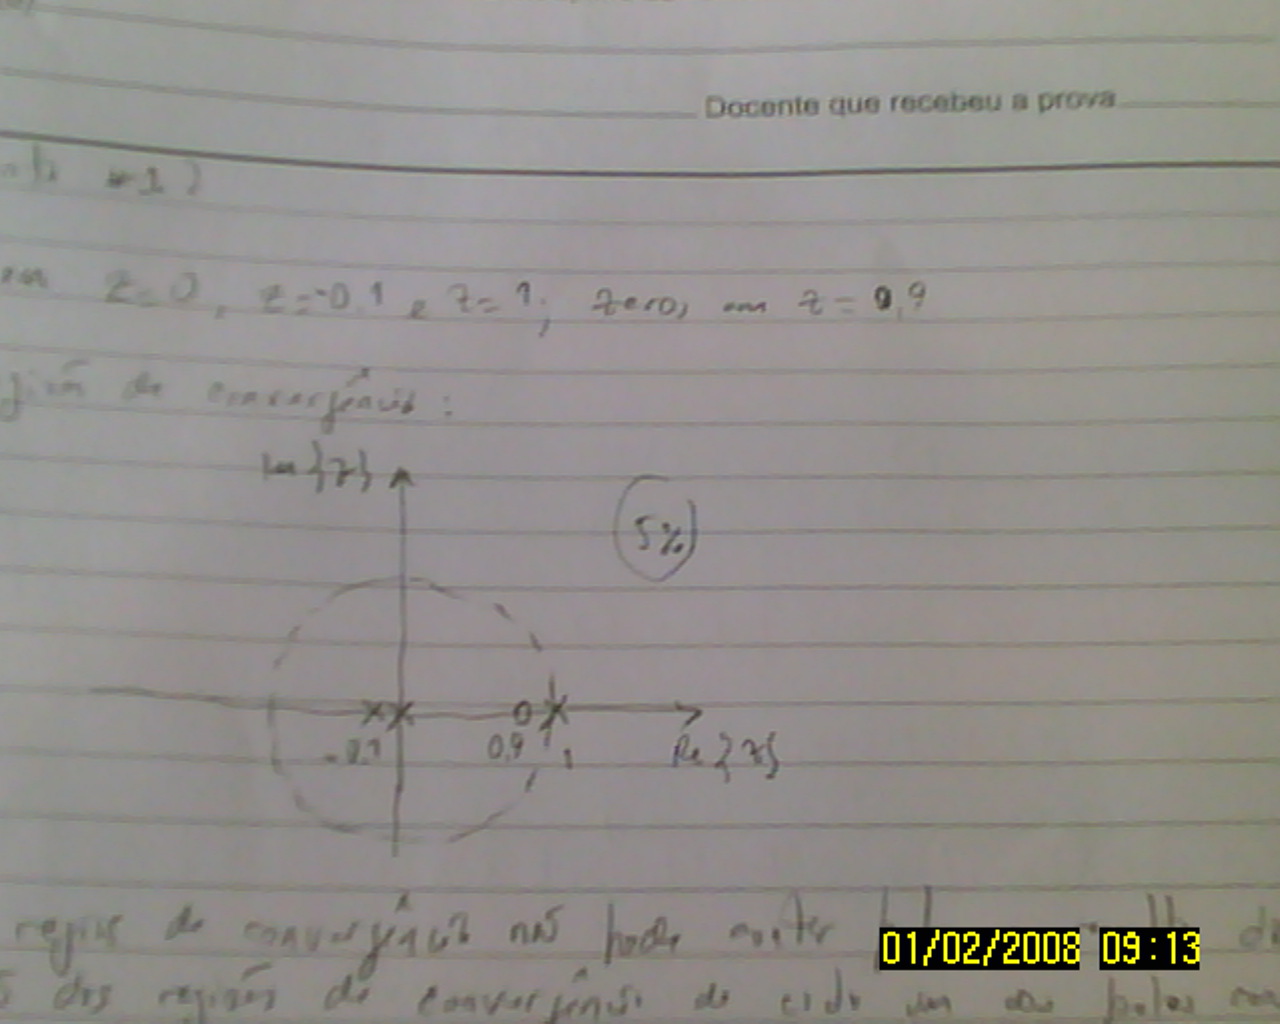 Docente que recebeu a prova
#1)
em z=0, z=-0,1 e z=1; zeros em z=0,9
de convergência:
Im{z}
5%
-0,1 0,9 1 Re{z}
região de convergência não pode conter
das regiões de convergência de cada um dos polos
01/02/2008 09:13